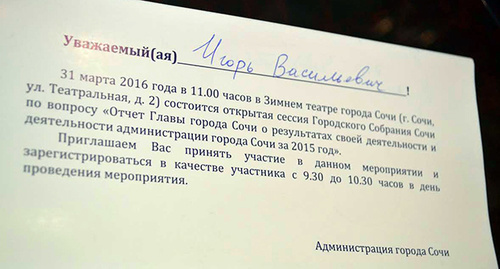 Уважаемый(ая) Игорь Васильевич !
31 марта 2016 года в 11.00 часов в Зимнем театре города Сочи (г. Сочи,
ул. Театральная, д. 2) состоится открытая сессия Городского Собрания Сочи
по вопросу «Отчет Главы города Сочи о результатах своей деятельности и
деятельности администрации города Сочи за 2015 год».
Приглашаем Вас принять участие в данном мероприятии и
зарегистрироваться в качестве участника с 9.30 до 10.30 часов в день
проведения мероприятия.
Администрация города Сочи